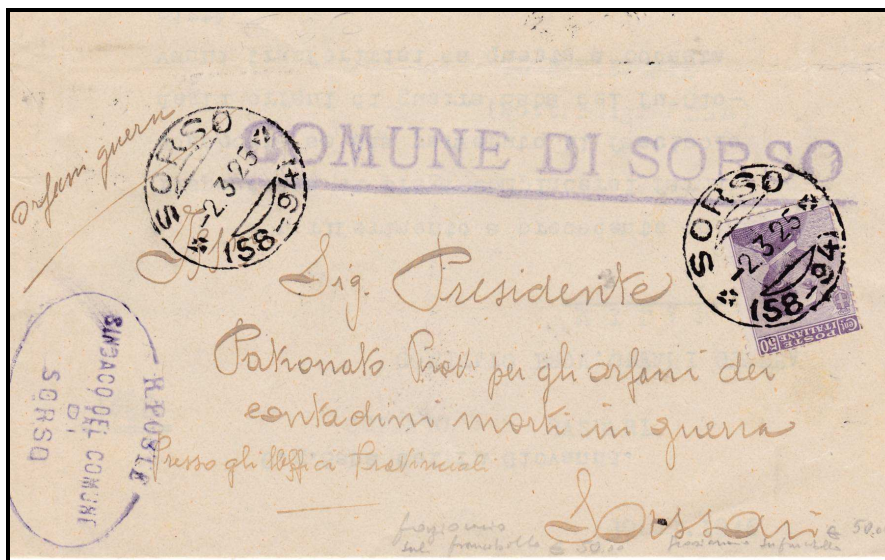 COMUNE DI SORSO
Orfani guerra
SORSO
-2.3.25
(58-94)
SORSO
-2.3.25
(58-94)
POSTE ITALIANE
Cent 50
Sig. Presidente
Patronato Prov per gli orfani dei
contadini morti in guerra
Presso gli Uffici Provinciali
Sassari
R. POSTE
SINDACO DEL COMUNE
DI
SORSO
sul francobollo € 50.00
€ 50.00